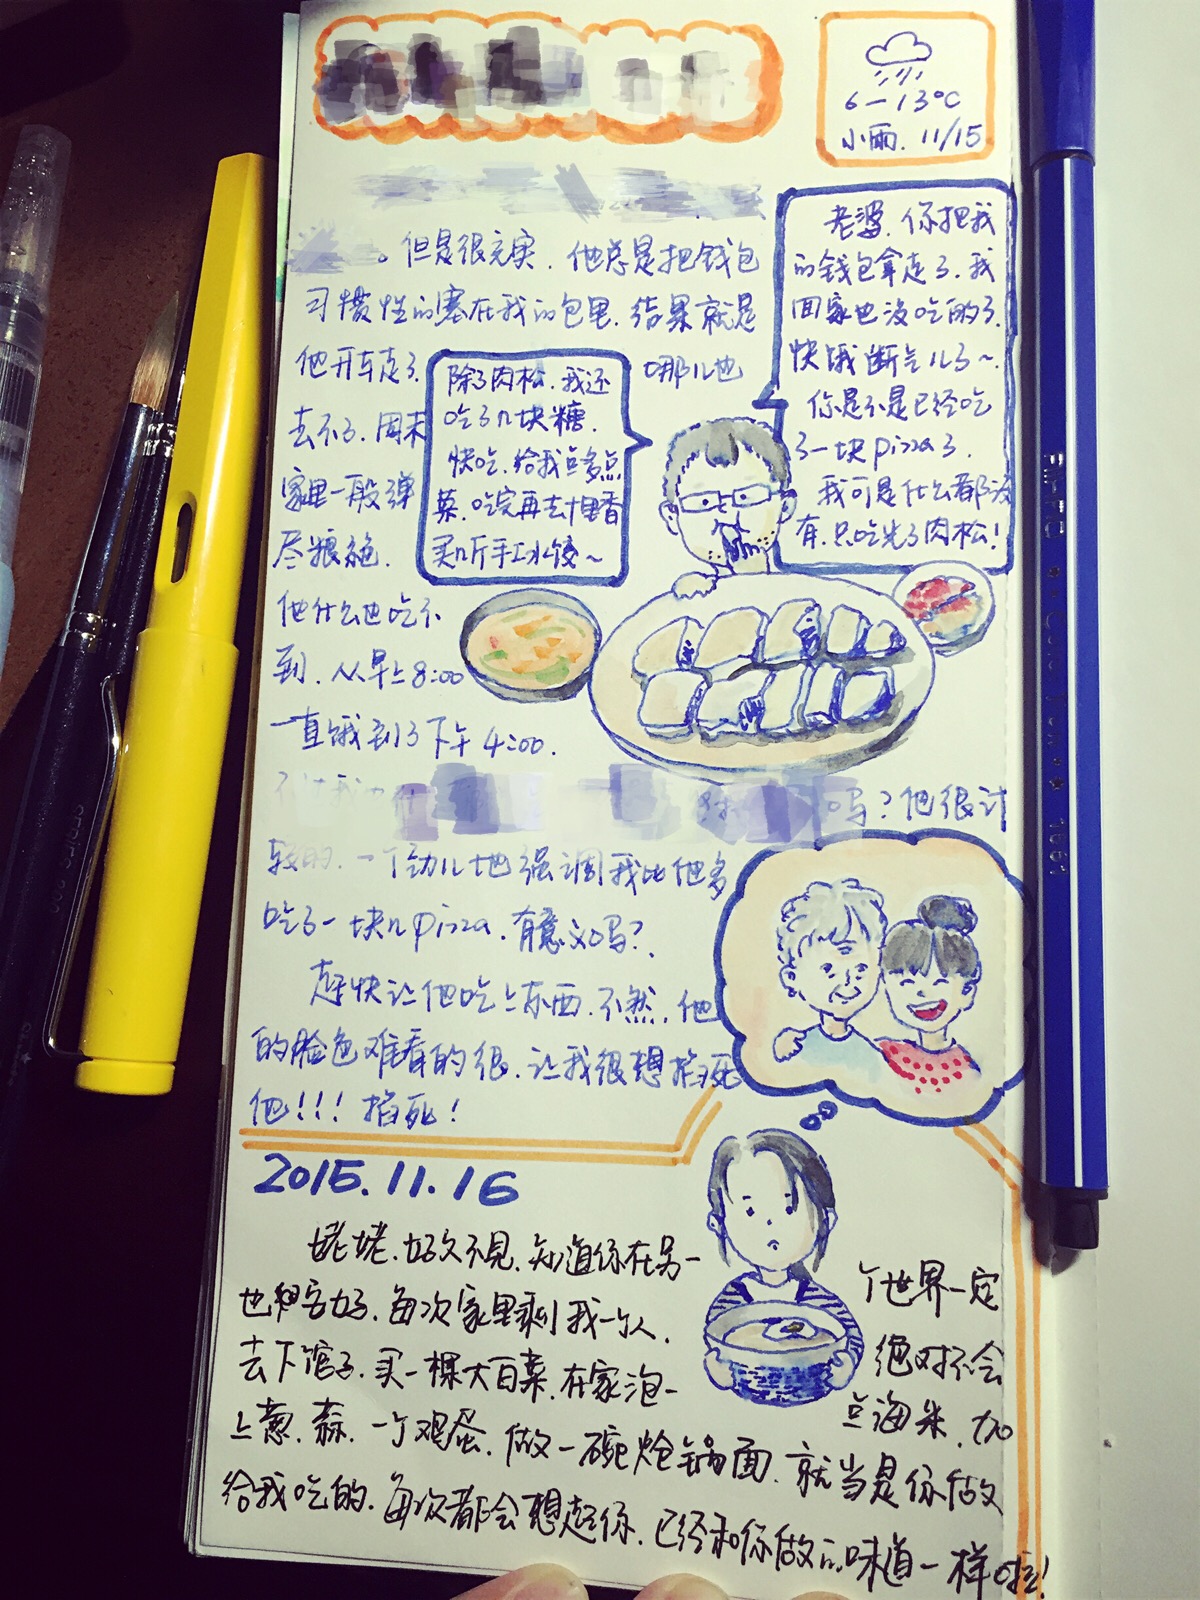 6-13°C
小雨. 11/15
。但是很充实. 他总是把钱包
习惯性的塞在我的包里. 结果就是
他开车走了. 哪儿也
去不了. 周末
家里一般弹
尽粮绝.
他什么也吃不
到. 从早上8:00
一直饿到了下午4:00.
除了肉松. 我还
吃了几块糖.
快吃. 给我点多点
菜. 吃完再去十里香
买几斤手工水饺~
老婆. 你把我
的钱包拿走了. 我
回家也没吃的了.
快饿断气儿了~
你是不是已经吃
了一块pizza了.
我可是什么都没
有. 只吃光了肉松!
吗? 他很计
较的. 一个劲儿地强调我比他多
吃了一块儿pizza. 有意义吗?
赶快让他吃上东西. 不然. 他
的脸色难看的很. 让我很想掐死
他!!! 掐死!
2015.11.16
姥姥. 好久不见. 知道你在另一个世界一定
也相当好. 每次家里剩我一个人. 绝对不会
去下馆子. 买一棵大白菜. 在家泡一点海米. 加
上葱. 蒜. 一个鸡蛋. 做一碗炝锅面. 就当是你做
给我吃的. 每次都会想起你. 已经和你做的味道一样啦!